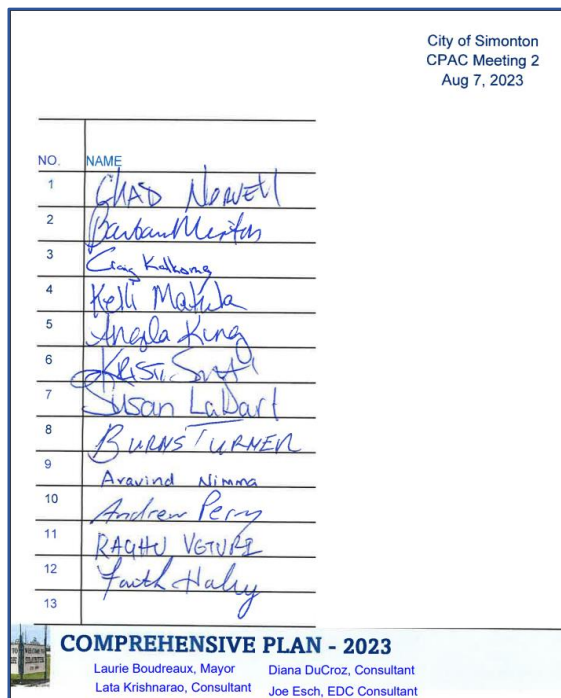 City of Simonton
CPAC Meeting 2
Aug 7, 2023
NO. NAME
1 CHAD NORVELL
2 Barbara
3 Craig
4 Kelli Matula
5 Angela King
6 KRISTI
7 Susan LaDart
8 BURNS TURNER
9 Aravind Nimma
10 Andrew Perry
11 RAGHU VETURI
12 Faith
13
COMPREHENSIVE PLAN - 2023
Laurie Boudreaux, Mayor Diana DuCroz, Consultant
Lata Krishnarao, Consultant Joe Esch, EDC Consultant